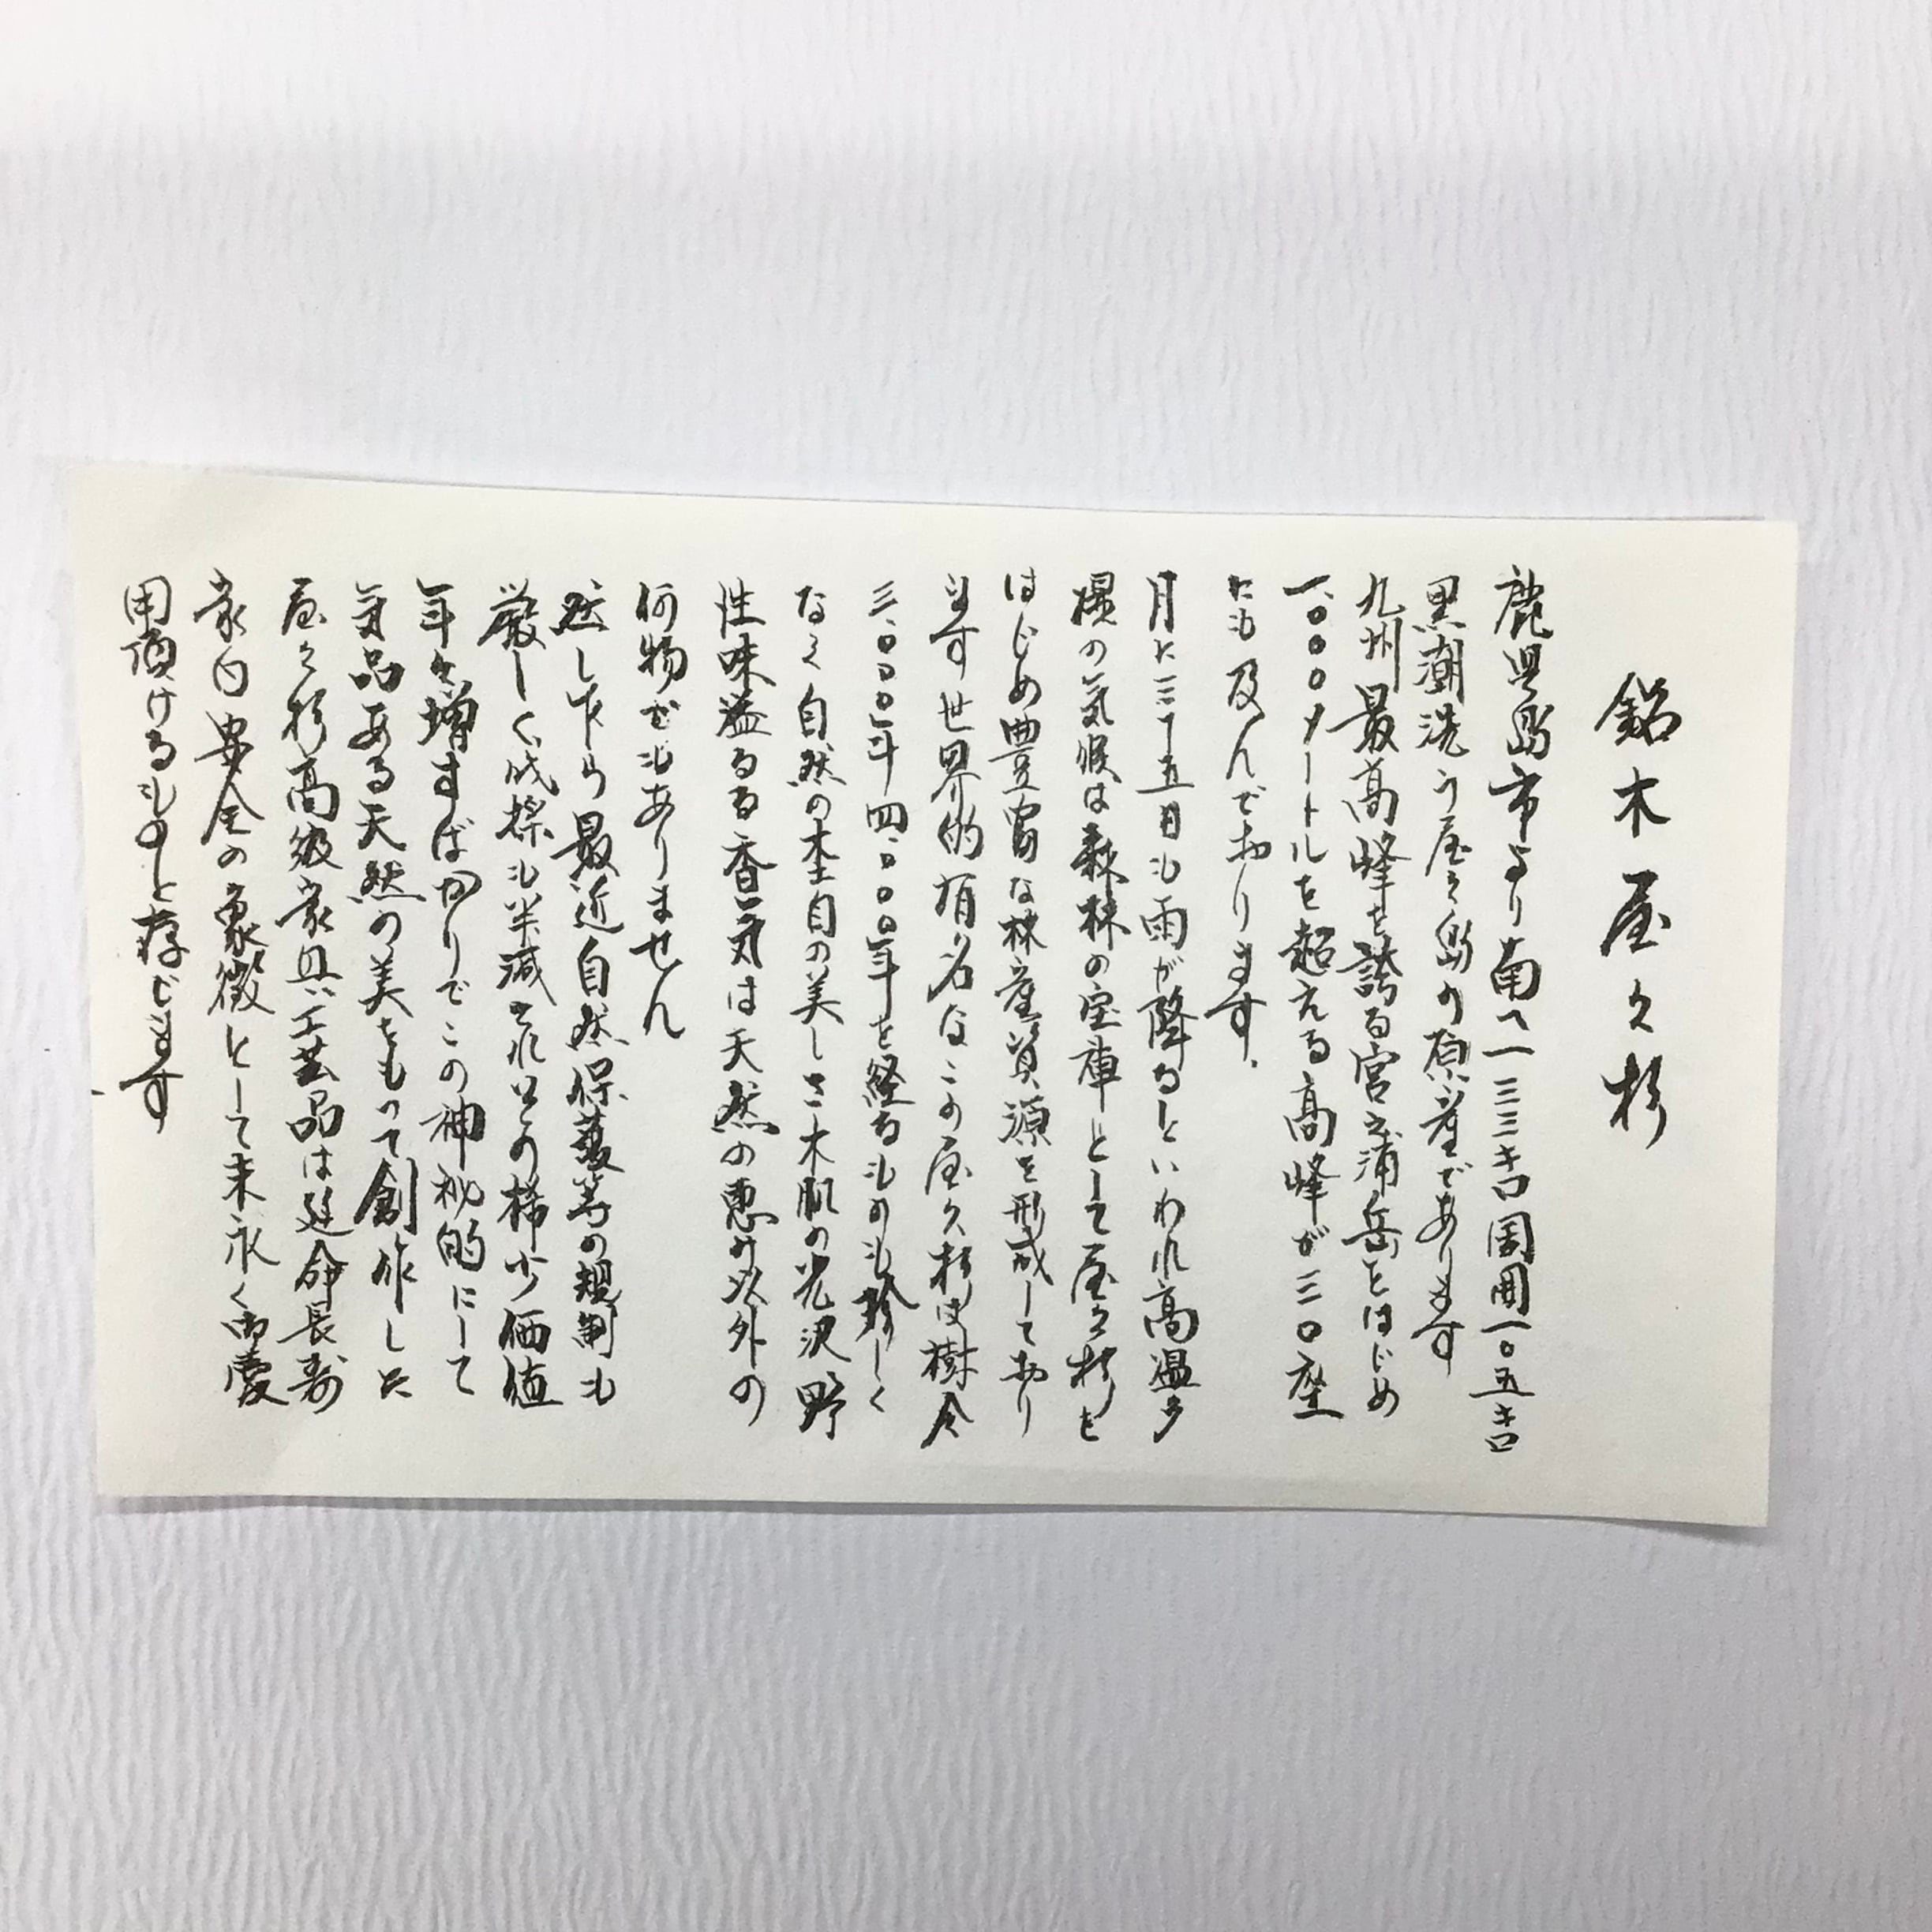 銘木屋久杉
鹿児島市より南へ一三三キロ周囲一〇五キロ
黒潮洗う屋久島の原産であります
九州最高峰を誇る宮之浦岳をはじめ
一、〇〇〇メートルを超える高峰が三〇座
にも及んでおります、
月に三十五日も雨が降るといわれ高温多
湿の気候は森林の宝庫として屋久杉を
はじめ豊富な林産資源を形成しており
ます世界的有名なこの屋久杉は樹令
三、〇〇〇年四、〇〇〇年を経るものも珍しく
なく自然の杢目の美しさ木肌の光沢野
性味溢るる香気は天然の恵み以外の
何物でもありません
然し乍ら最近自然保護等の規制も
厳しく伐採も半減されその稀少価値
年々増すばかりでこの神秘的にして
気品ある天然の美をもって創作した
屋久杉高級家具工芸品は延命長寿
家内安全の象徴として末永く御愛
用頂けるものと存じます